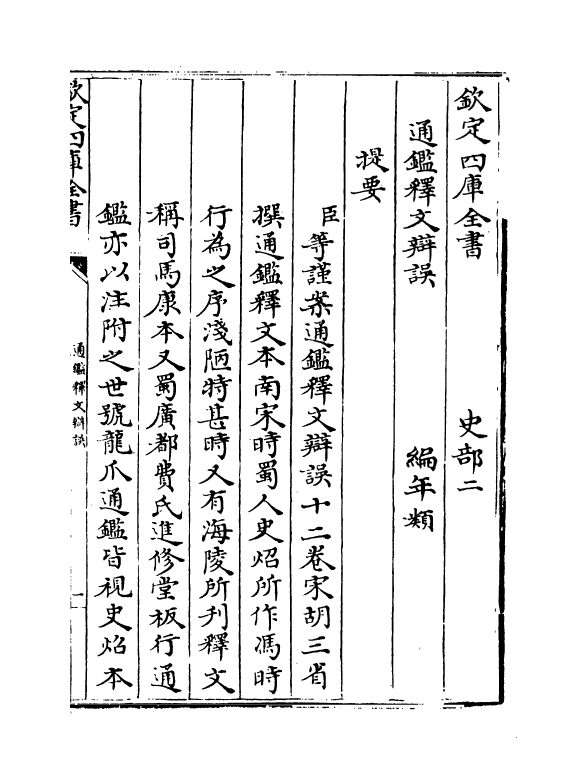 欽定四庫全書　史部二
通鑑釋文辯誤　編年類
提要
臣等謹案通鑑釋文辯誤十二卷宋胡三省
撰通鑑釋文本南宋時蜀人史炤所作馮時
行為之序淺陋特甚時又有海陵所刋釋文
稱司馬康本又蜀廣都費氏進修堂板行通
鑑亦以注附之世號龍爪通鑑皆視史炤本
欽定四庫全書
通鑑釋文辯誤
一